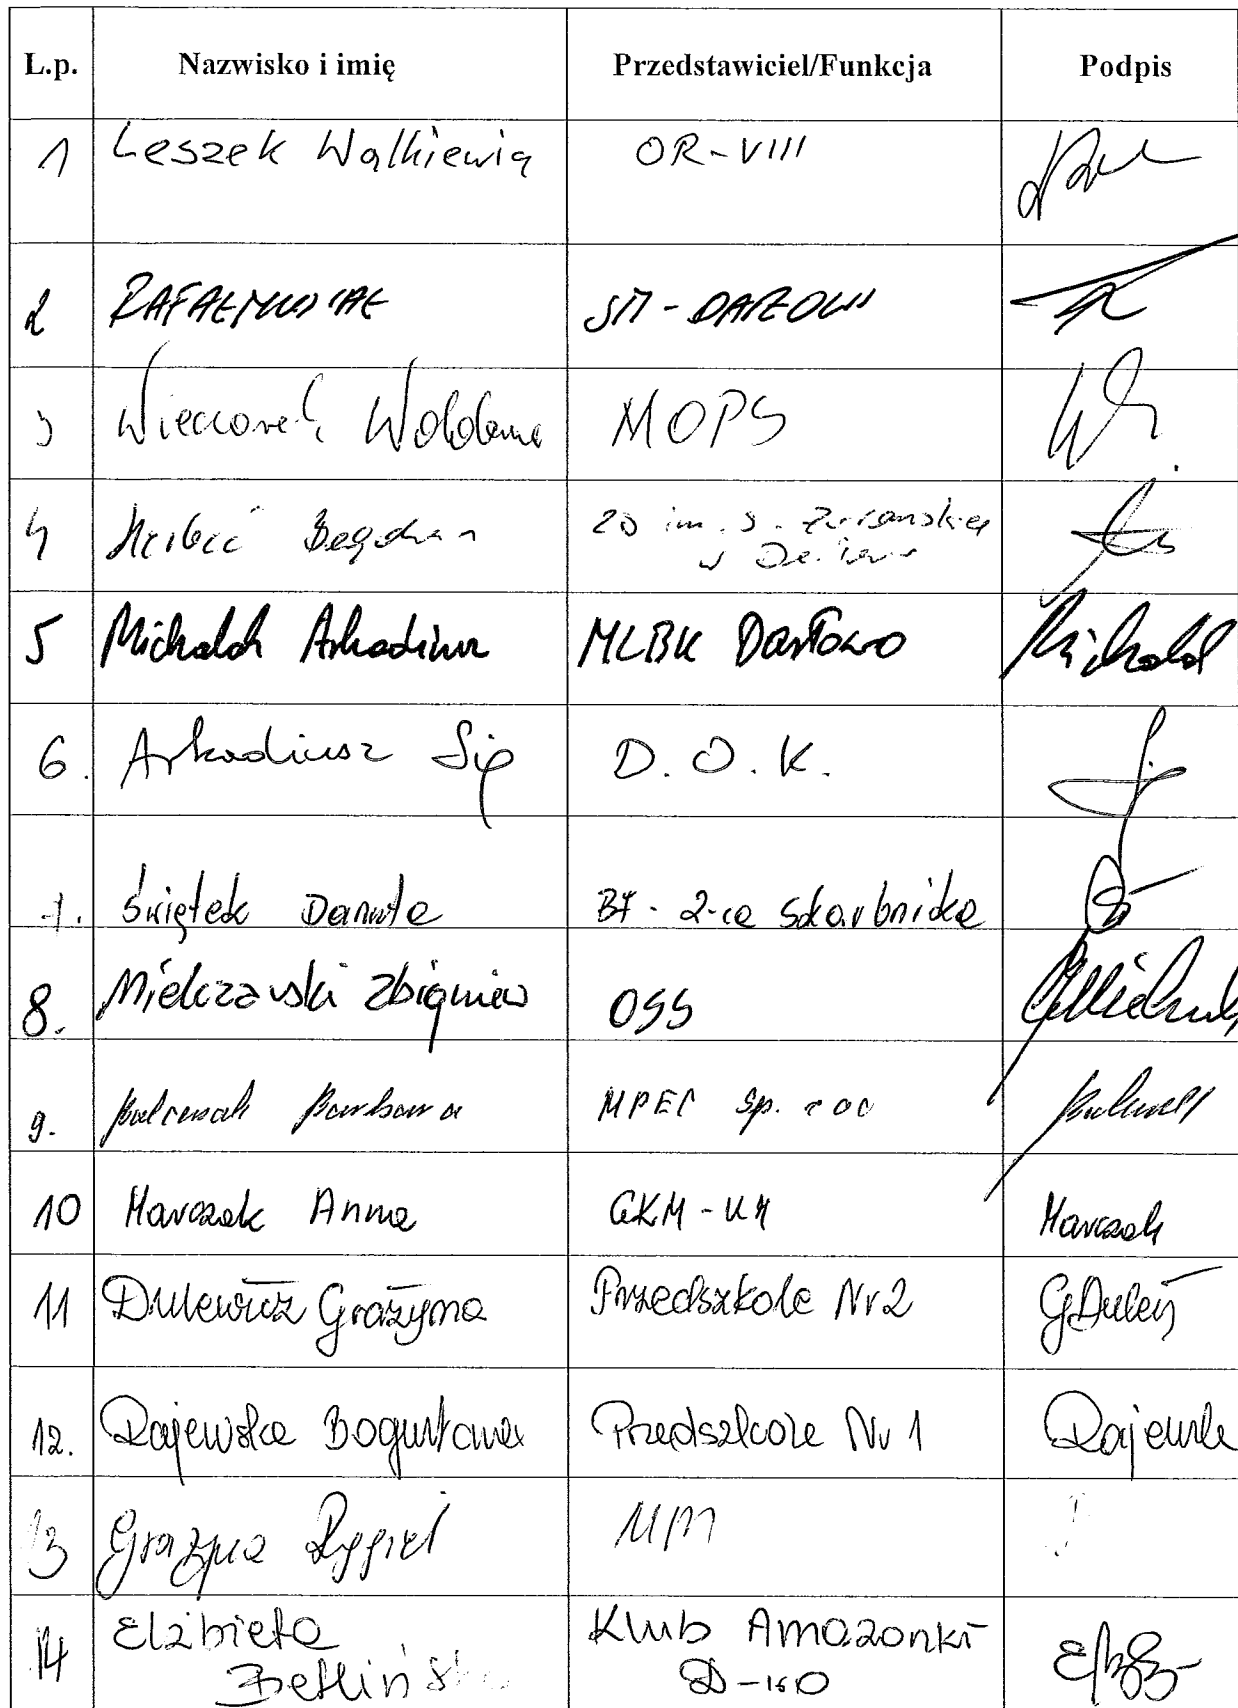 L.p. Nazwisko i imię Przedstawiciel/Funkcja Podpis
1 Leszek Walkiewicz OR-VIII
2 RAFAŁ SM - DARŁOWO
3 Wieczorek MOPS
4 Bogdan im. S. Żeromskiego
w
5 Michalak Arkadiusz MLBK Darłowo Michalak
6. Arkadiusz Sip D.O.K.
7. Świętek Danuta BF - Z-ca Skarbnika
8. Mielczarski Zbigniew OSS
9. Balcerzak Barbara MPEC Sp. z oo
10 Marczak Anna GKM - UM Marczak
11 Dulewicz Grażyna Przedszkole Nr 2 GDulewicz
12. Rajewska Bogusława Przedszkole Nr 1 Rajewska
13 Grażyna Rygiel UM
14 Elżbieta Klub Amazonki
Betlińska D-wo